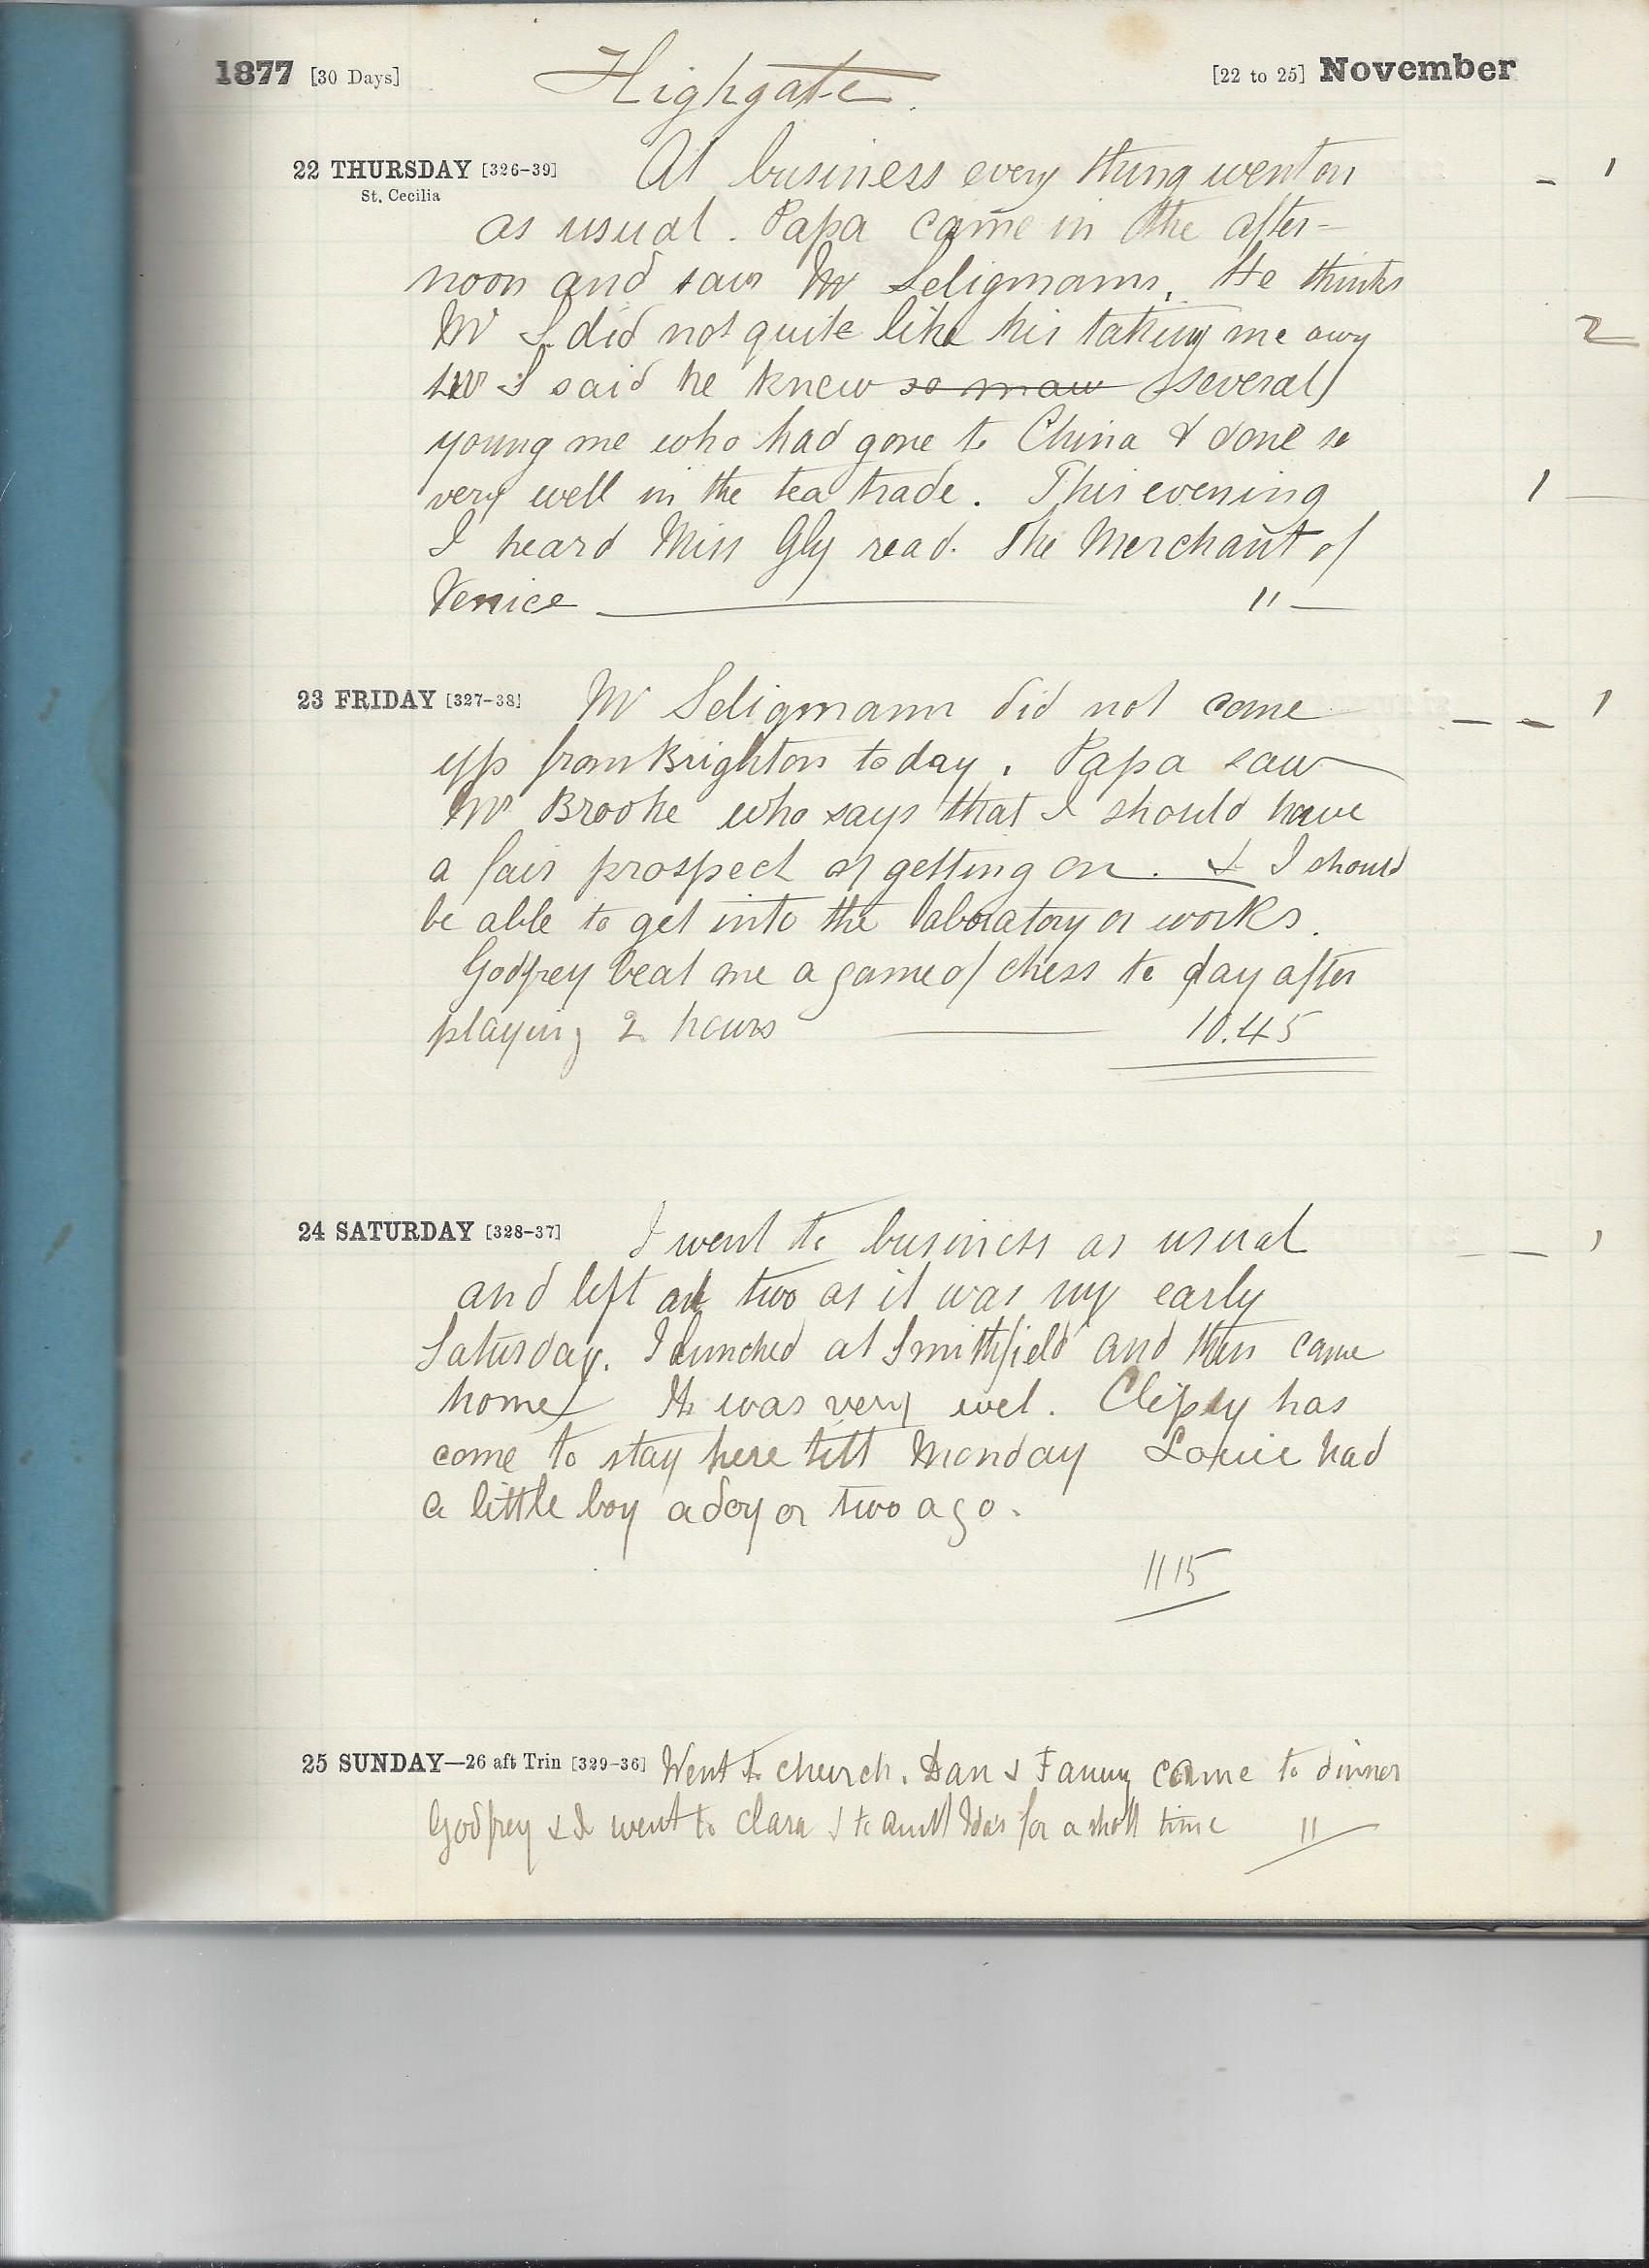 1877 [30 Days] Highgate. [22 to 25] November
22 THURSDAY [326-39] At business every thing went on
St. Cecilia
as usual. Papa came in the after-
noon and saw Mr Seligmann. He thinks
Mr S did not quite like his taking me away
Mr S said he knew so several
young me who had gone to China & done so
very well in the tea trade. This evening
I heard Miss Gly read. The Merchant of
Venice 11
23 FRIDAY [327-38] Mr Seligmann did not come
up from Brighton to day. Papa saw
Mr Brooke who says that I should have
a fair prospect of getting on. & I should
be able to get into the laboratory or works.
Godfrey beat me a game of chess to day after
playing 2 hours 10.45
24 SATURDAY [328-37] I went to business as usual
and left at two as it was my early
Saturday. I lunched at Smithfield and then came
home It was very wet. has
come to stay here till Monday Louie had
a little boy a day or two ago.
11 15
25 SUNDAY—26 aft Trin [329-36] Went to church. Dan & Fanny came to dinner
Godfrey & I went to Clara & to aunt Ida's for a short time 11
- 1
2
1 -
- - 1
- - 1